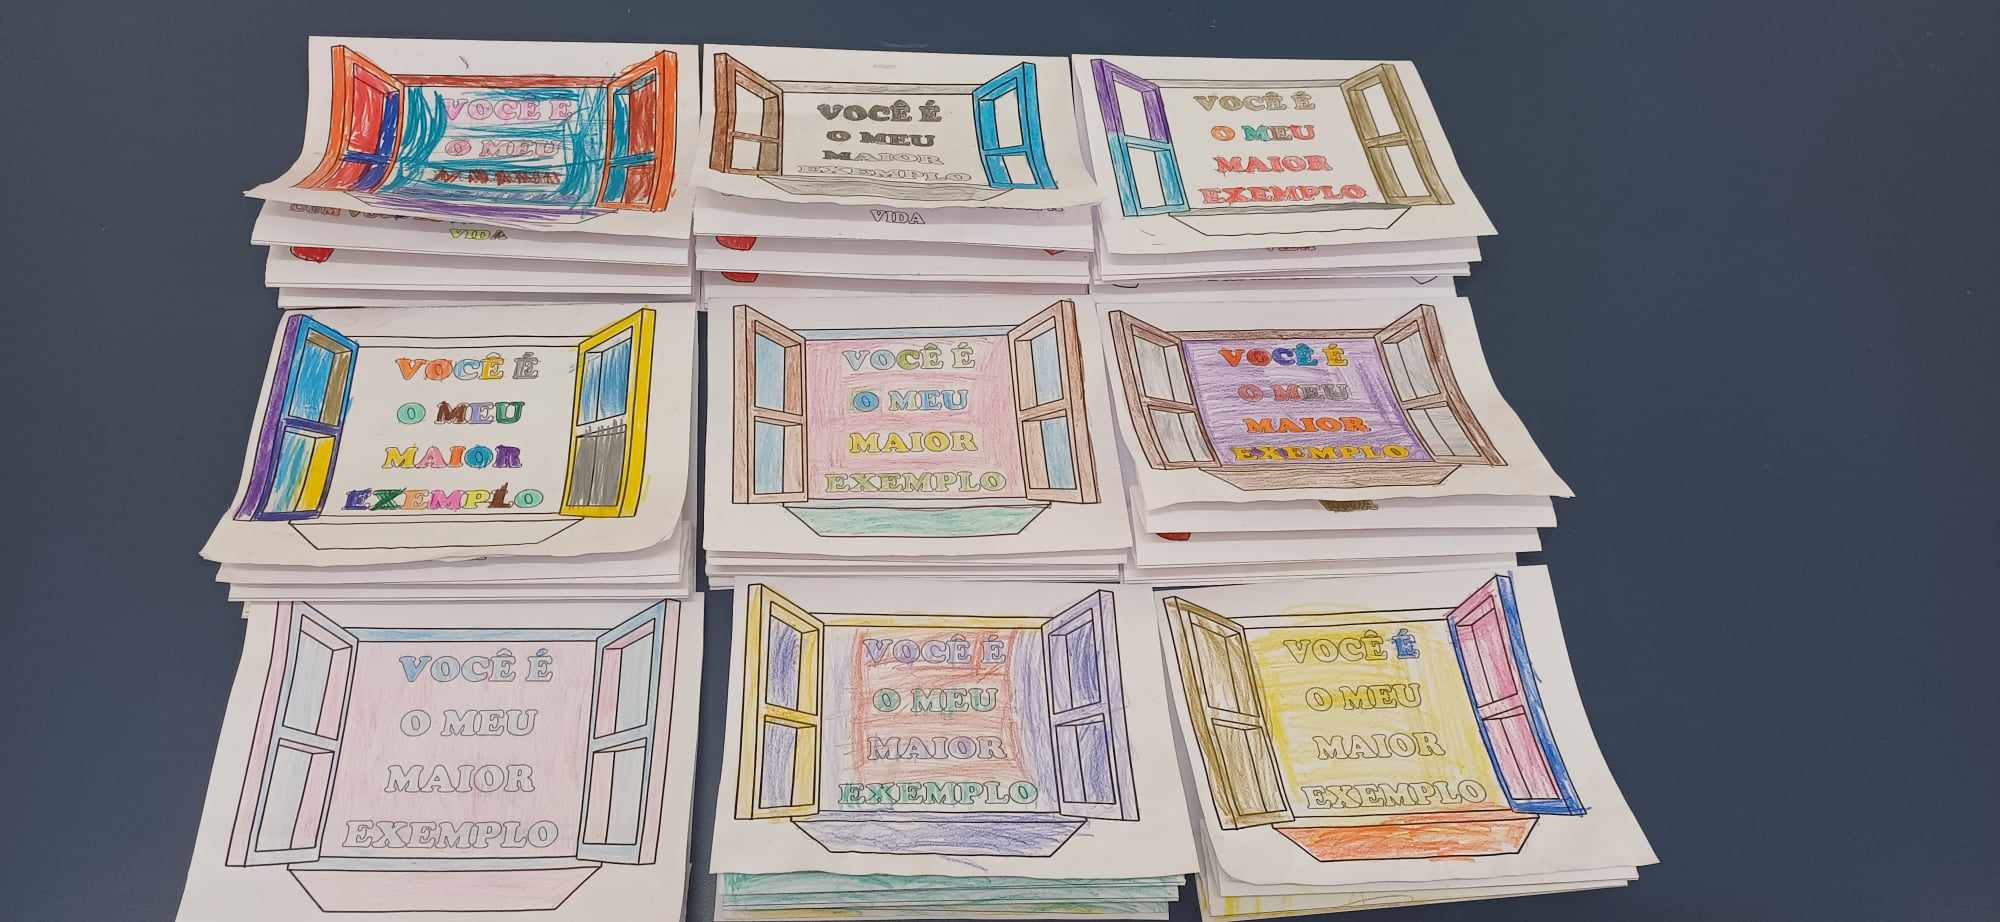 VOCÊ É
O MEU
VIDA
VOCÊ É
O MEU
MAIOR
EXEMPLO
VIDA
VOCÊ É
O MEU
MAIOR
EXEMPLO
VOCÊ É
O MEU
MAIOR
EXEMPLO
VOCÊ É
O MEU
MAIOR
EXEMPLO
VOCÊ É
O MEU
MAIOR
EXEMPLO
VOCÊ É
O MEU
MAIOR
EXEMPLO
VOCÊ É
O MEU
MAIOR
EXEMPLO
VOCÊ É
O MEU
MAIOR
EXEMPLO